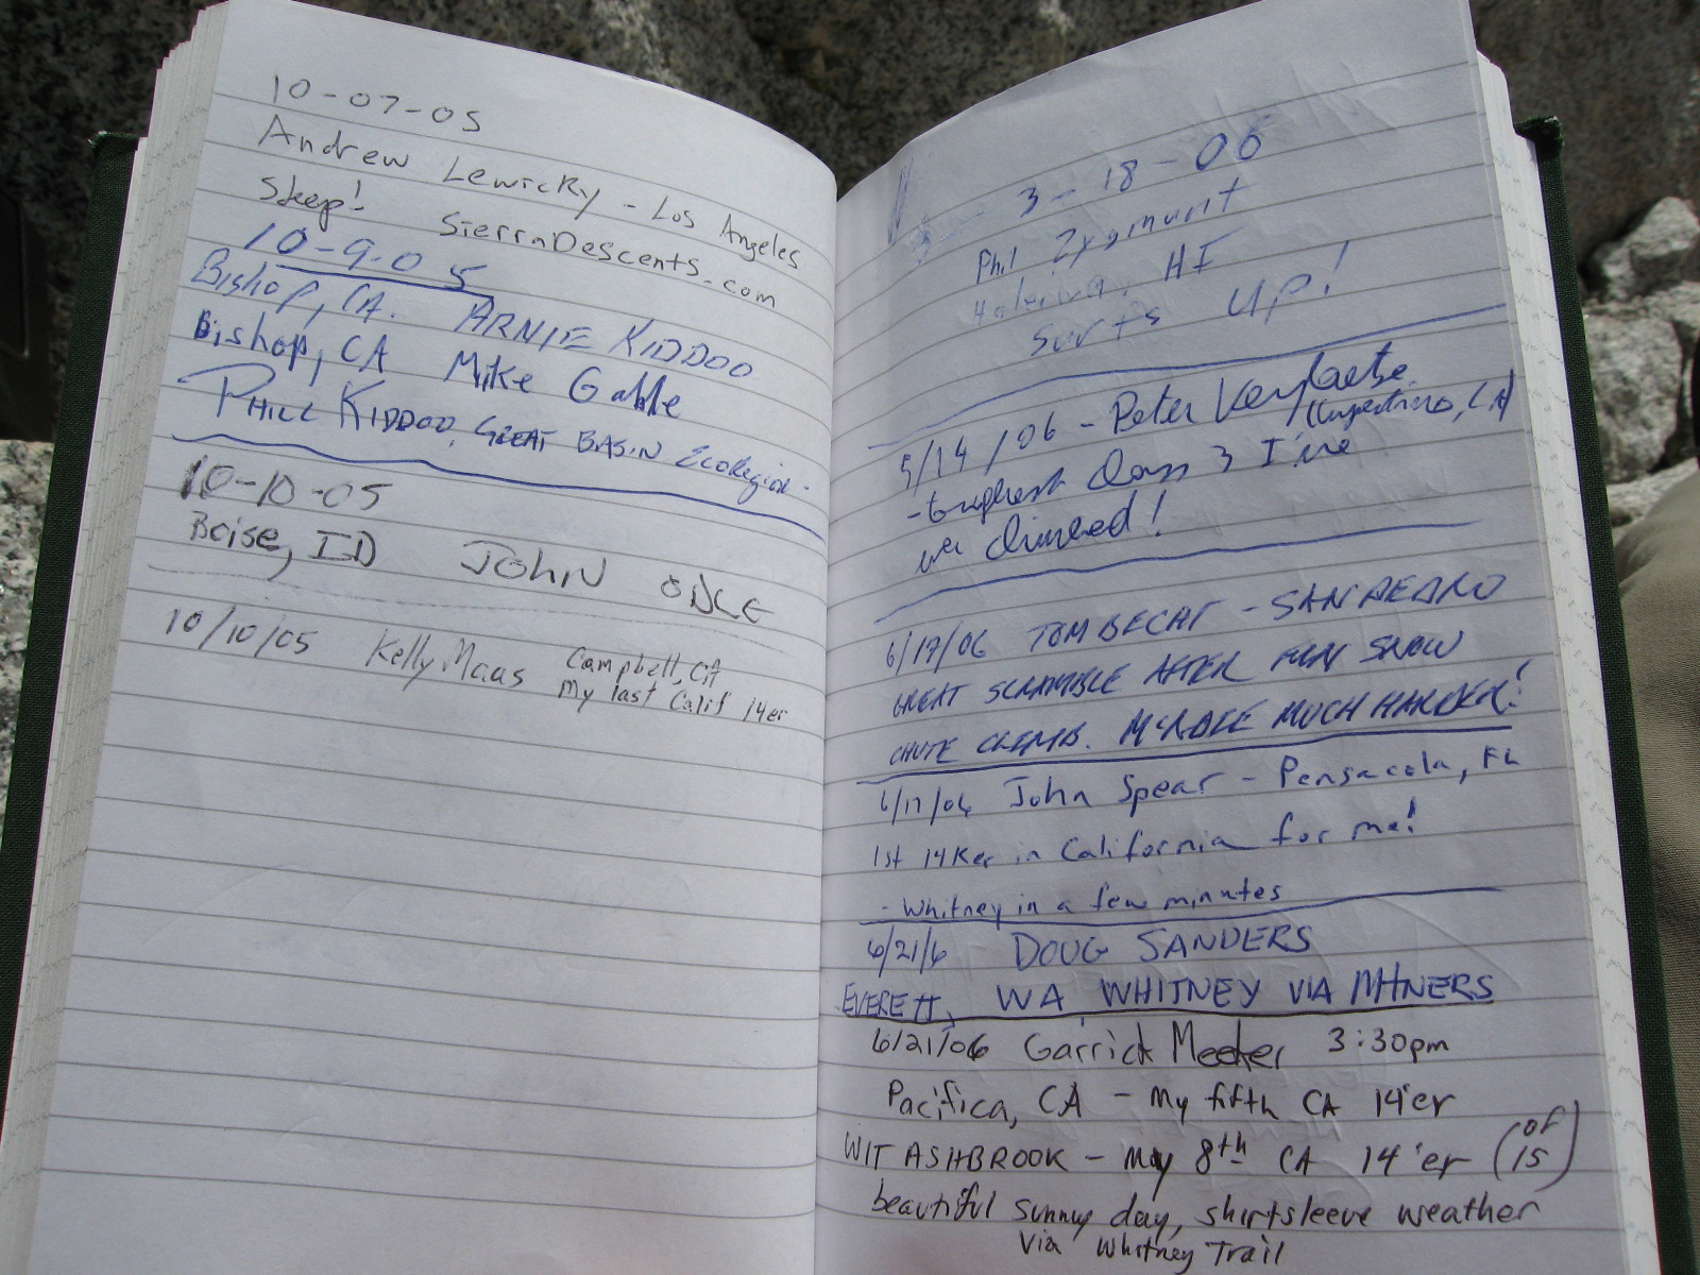 10-07-05
Andrew Lewicky - Los Angeles
Steep! SierraDescents.com
10-9-05
Bishop, CA. ARNIE KIDDOO
Bishop, CA Mike Gable
PHILL KIDDOO, GREAT BASIN EcoRegion.
10-10-05
Boise, ID JOHN
10/10/05 Kelly Maas Campbell, CA
My last Calif 14er
3-18-06
Phil Zygmunt
HI
Surf's UP!
5/14/06 - Peter
(Cupertino, CA)
- toughest Class 3 I've
ever climbed!
6/17/06 TOM BECHT - SAN PEDRO
GREAT SCRAMBLE AFTER FUN SNOW
CHUTE CLIMB. McADIE MUCH HARDER!
6/17/06 John Spear - Pensacola, FL
1st 14Ker in California for me!
- Whitney in a few minutes
6/21/6 DOUG SANDERS
EVERETT, WA WHITNEY VIA MTNERS
6/21/06 Garrick Meeker 3:30pm
Pacifica, CA - My fifth CA 14'er
WIT ASHBROOK - My 8th CA 14'er (of 15)
beautiful sunny day, shirtsleeve weather
via Whitney Trail